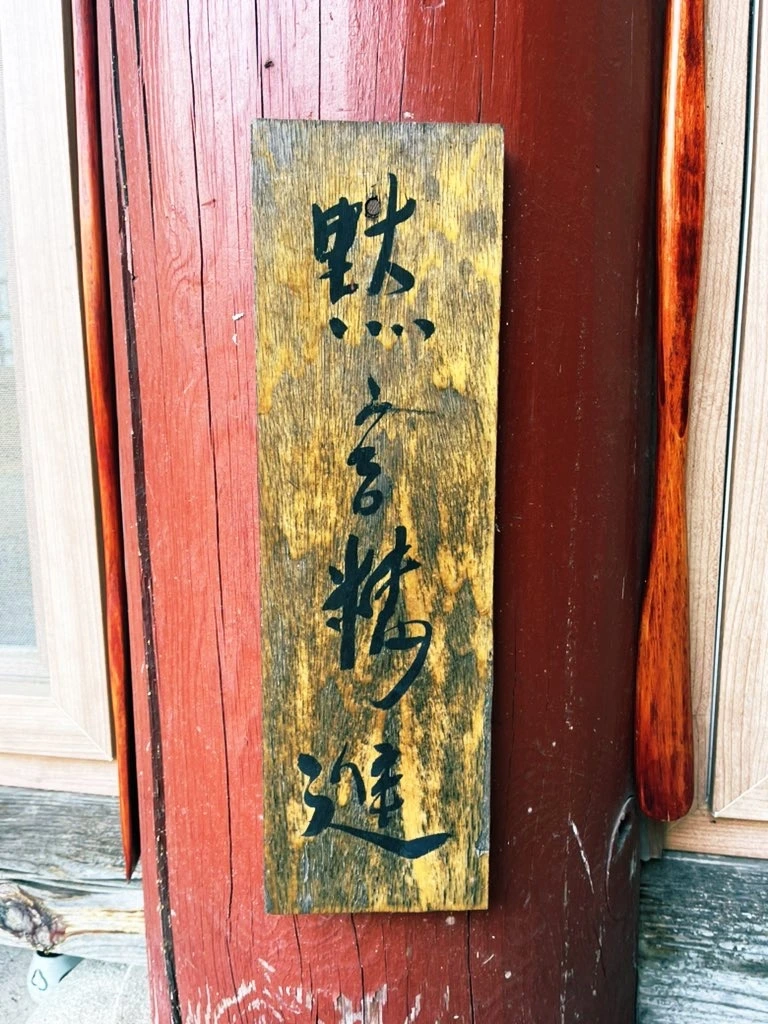 默言精進